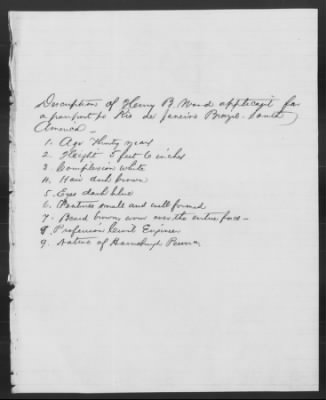 Description of Henry B. Wood applicant for
a passport to Rio de Janeiro Brazil. South
America –
1. Age Thirty years
2. Height 5 feet 6 inches
3. Complexion white
4. Hair dark brown
5. Eyes dark blue
6. Features small and well formed
7. Beard brown, worn over the entire face –
8. Profession Civil Engineer
9. Native of Harrisburgh Penna